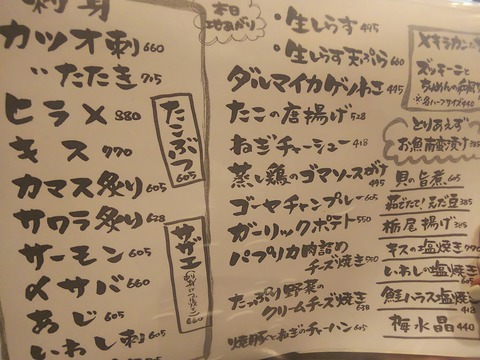 刺身
カツオ刺 660
〃 たたき 715
ヒラメ 880
キス 770
カマス炙り 605
サワラ炙り 628
サーモン 605
〆サバ 660
あじ 605
いわし刺 605
たこぶつ 605
サザエ
本日
地あがり
・生しらす 495
・生しらす天ぷら 660
ダルマイカゲソわさ 495
たこの唐揚げ 528
ねぎチャーシュー 418
蒸し鶏のゴマソースがけ 495
ゴーヤチャンプレー 605
ガーリックポテト 550
パプリカ肉詰め
チーズ焼き
たっぷり野菜の
クリームチーズ焼き 638
焼豚とねぎのチャーハン 605
メキシカン
ズッキーニと
※各ハーフサイズ 440
とりあえず
お魚南蛮漬け 385
貝の旨煮 605
茹でたて! えだ豆 385
栃尾揚げ 385
キスの塩焼き 770
いわしの塩焼き 605
鮭ハラス塩焼き 418
梅水晶 440